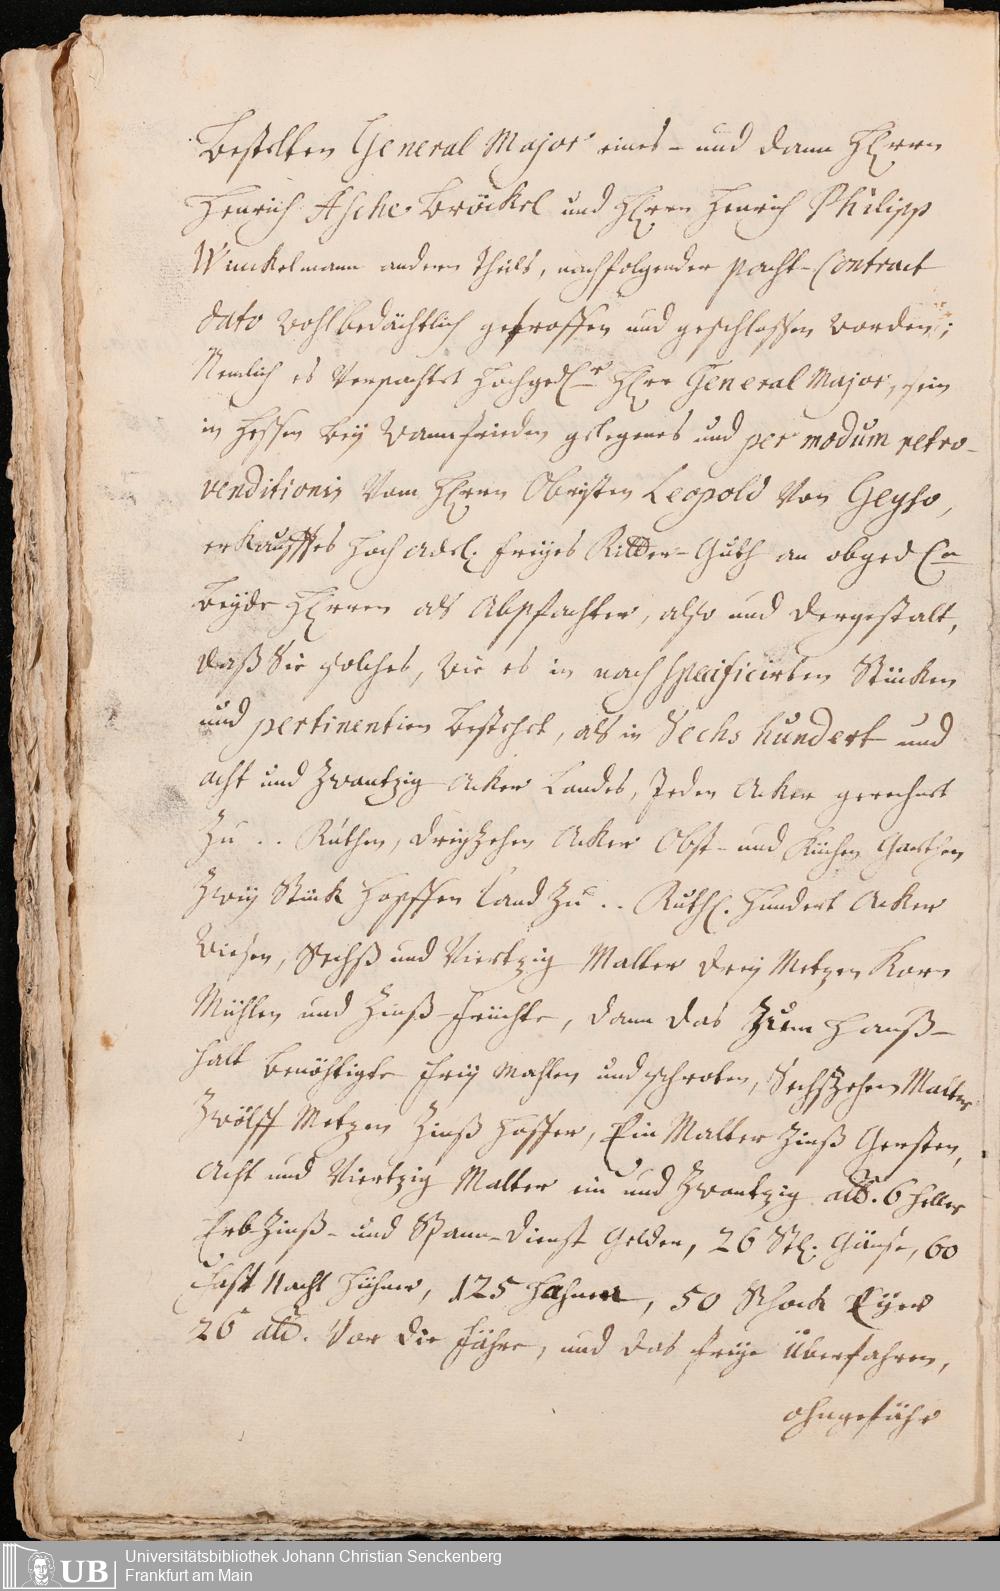 Bestelten General Major eines - und dann Herrn
Henrich Asche Bröckel und Herrn Henrich Philipp
Winckelmann andern Theils, nachfolgender Pacht-Contract
dato wohlbedächtlich getroffen und geschlossen worden;
Nemlich es verpachtet Hochged.r Herr General Major, sein
in Hessen bey Wannfrieden gelegenes und per modum retro-
venditionis vom Herrn Obristen Leopold von Geyso,
erkaufftes Hoch Adel. freyes Ritter-Guth an obged.en
beyde Herren als Abpfachter, also und dergestalt,
daß Sie solches, wie es in nach specificirten Stücken
und pertinentien bestehet, als in Sechs hundert und
acht und zwantzig Acker Landes, Jeden Acker gerechnet
zu .. Ruthen, dreyzehen Acker Obst- und Küchen Garthen
zwey Stück Hopffen Land zu .. Ruth. Hundert Acker
Wiesen, Sechß und Viertzig Malter drey Metzen Korn
Mühlen und Zinß-Früchte, dann das zum Hauß-
halt benöhtigte frey mahlen und schroten, Sechszehen Malter
zwölff Metzen Zinß Haffer, Ein Malter Zinß Gersten,
Acht und Viertzig Malter ein und zwantzig alb. 6 Heller
Erb-Zinß- und Spann-Dienst Gelder, 26 Stk. Gänse, 60
Fast Nacht Hühner, 125 Hahnen, 50 Schock Eyer
26 alb. vor die Fähre, und das freye Überfahren,
ohngefähr
Universitätsbibliothek Johann Christian Senckenberg
Frankfurt am Main
UB